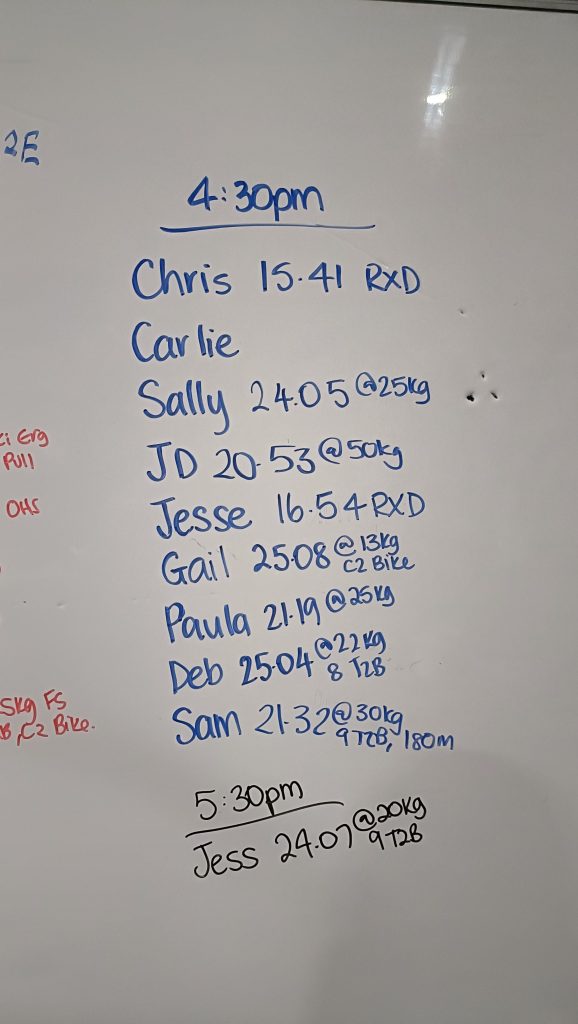 2E
4:30pm
Chris 15.41 RXD
Carlie
Sally 24.05 @25kg
JD 20.53 @50kg
Jesse 16.54 RXD
Gail 25.08 @13kg
C2 Bike
Paula 21.19 @25kg
Deb 25.04 @22kg
8 T2B
Sam 21.32 @30kg
9 T2B, 180m
5:30pm
Jess 24.07 @20kg
9 T2B
Erg
Pull
OHS
5kg FS
C2 Bike.